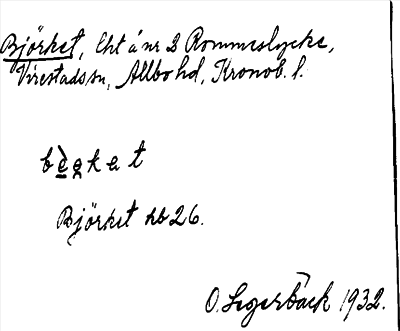 Björket, Lht å nr 2 Rommeslycke,
Virestads sn, Allbo hd, Kronob. l.
bè̱ǫket
Björket hb 26.
O. Segerbäck 1932.